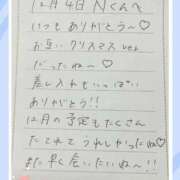 12月4日 Nくんへ
いつもありがとう〜♡
お互いクリスマスver
だったね〜♡
差し入れもいっぱい
ありがとう!!
12月の予定もたくさん
たてれてうれしかったな♡
また早く会いたいね〜!!